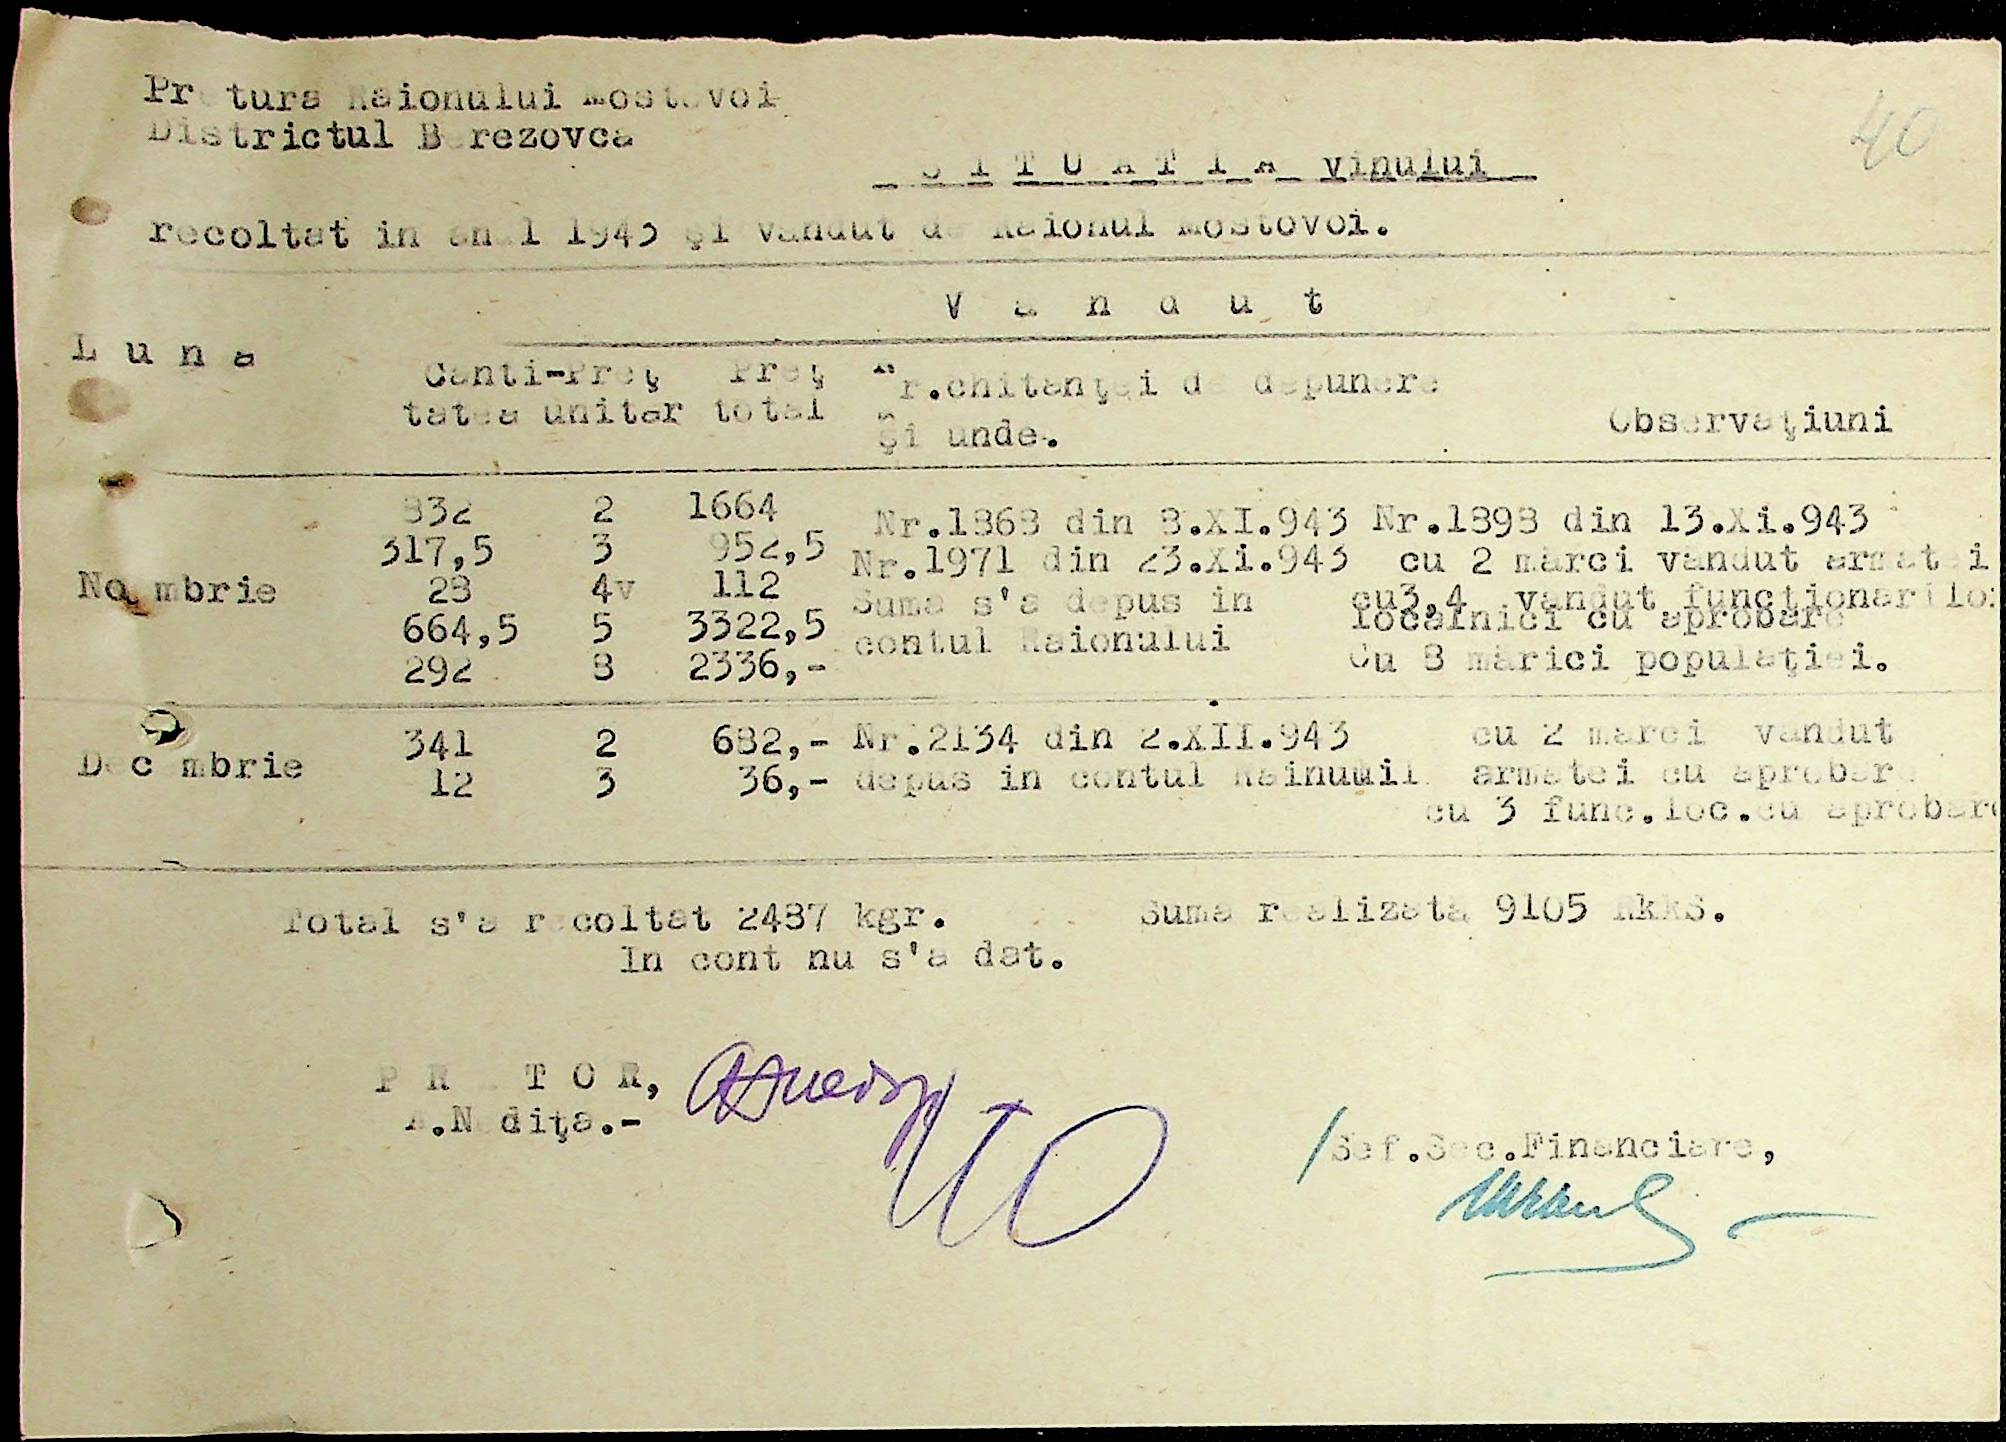 Pretura Raionului Mostovoi
Districtul Berezovca
40
SITUATIA vinului
recoltat in anul 1943 şi vandut de Raionul Mostovoi.
Vandut
Luna
Canti-Preţ Preţ Nr.chitanţei de depunere
tatea unitar total şi unde. Observaţiuni
832 2 1664 Nr.1868 din 8.XI.943 Nr.1898 din 13.Xi.943
317,5 3 952,5 Nr.1971 din 23.Xi.943 cu 2 mărci vandut armatei
Noembrie 28 4v 112 Suma s'a depus in cu3,4 vandut funcţionarilor
664,5 5 3322,5 contul Raionului localnici cu aprobare
292 8 2336,- Cu 8 mărici populaţiei.
341 2 682,- Nr.2134 din 2.XII.943 cu 2 marci vandut
Decembrie 12 3 36,- depus in contul armatei cu aprobare
cu 3 func.loc.cu aprobare
Total s'a recoltat 2487 kgr. Suma realizata 9105 RkkS.
In cont nu s'a dat.
PRETOR,
A.Nediţa.-
Sef.Sec.Financiare,